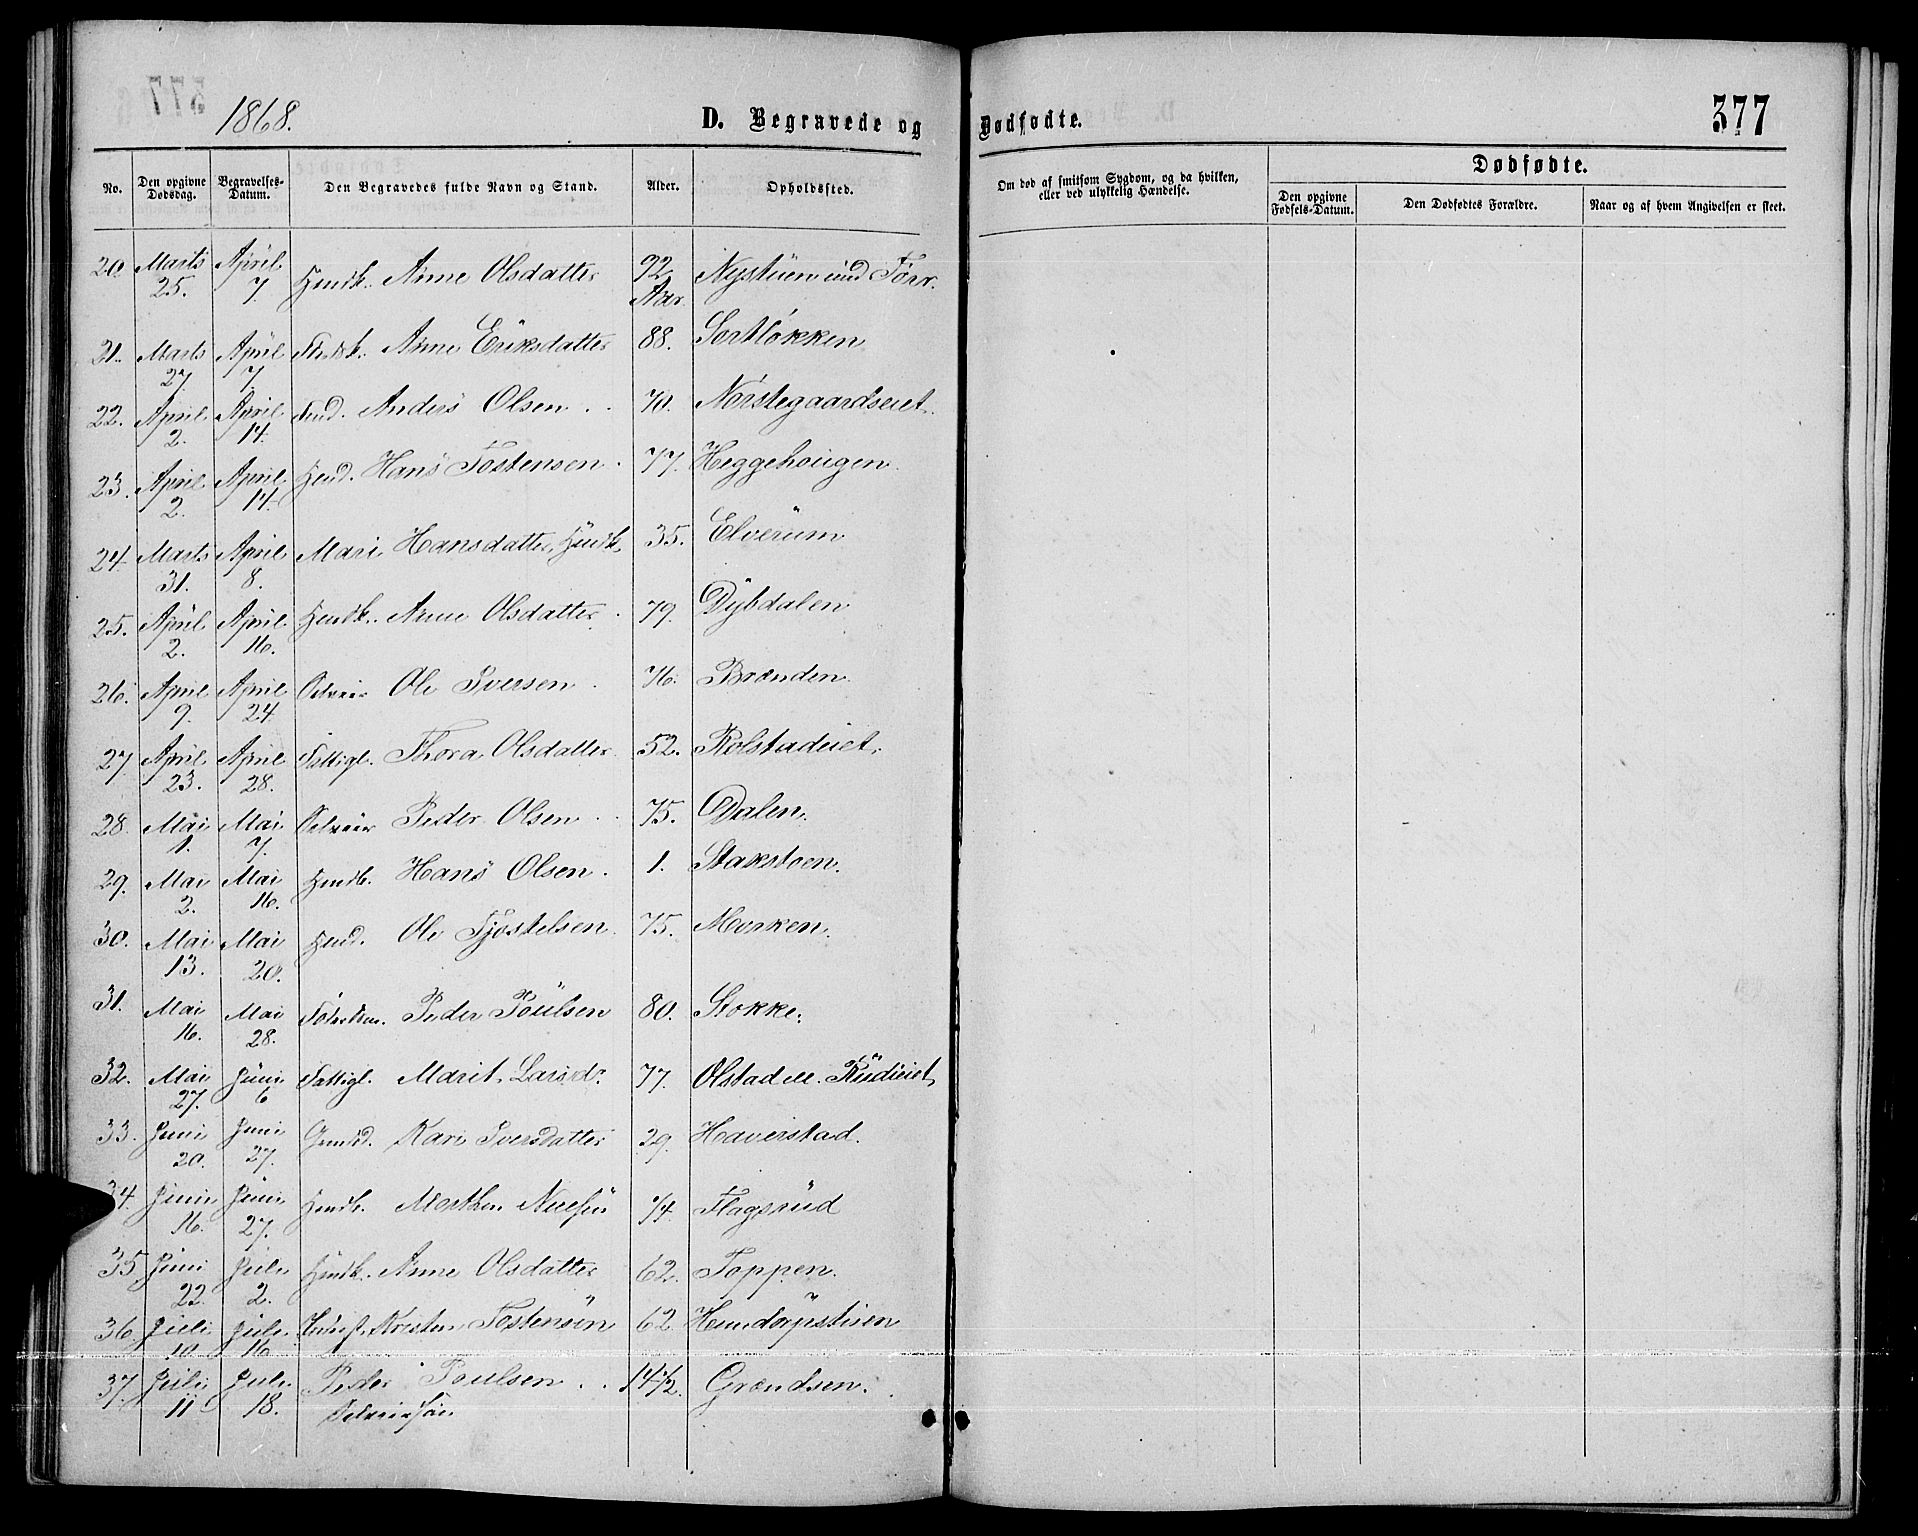 1868.
D. Begravede og Dødfødte.
377
No.
Den opgivne Dødsdag.
Begravelses-Datum.
Den Begravedes fulde Navn og Stand.
Alder.
Opholdssted.
Om død af smitsom Sygdom, og da hvilken, eller ved ulykkelig Hændelse.
Dødfødte.
Den opgivne Fødsels-Datum.
Den Dødfødtes Forældre.
Naar og af hvem Angivelsen er skeet.
20. Marts 25. April 7. Anne Olsdatter 92 Aar. Nystuen
21. Marts 27. April 7 Anne Eriksdatter 88. Sortløkken
22. April 2. April 14. Anders Olsen 70. Nørstegaardseiet.
23. April 2. April 14. Hans Tostensen 77. Heggehougen
24. Marts 31. April 8. Mari Hansdatter 35. Elverum
25. April 2. April 16. Anne Olsdatter 79. Dybdalen
26. April 9. April 24. Ole Iversen 76. Brænden
27 April 23. April 28. Fattigl. Thora Olsdatter 52. Rolstadeiet.
28. Mai 1. Mai 7. Selveier Peder Olsen 75. Dalen.
29. Mai 2. Mai 16. Hans Olsen 1. Stakstoen.
30. Mai 13. Mai 20. Ole Tjøstelsen 75. Morken.
31. Mai 16. Mai 28. Peder Poulsen 80. Stokke.
32. Mai 27. Juni 6 Fattigl. Marit Larsd. 77. Olstad Rudieiet
33. Juni 20. Juni 27. Kari Iversdatter 29. Haverstad.
34. Juni 16. Juni 27. Morthen Flagsrud
35 Juni 22. Juli 2. Anne Olsdatter 62. Toppen.
36. Juli 10 Juli 16 Kristen Tostensøn 62. Hundorpstuen
37. Juli 11 Juli 18. Peder Poulsen 14 1/2. Grændsen.
Selveiersøn